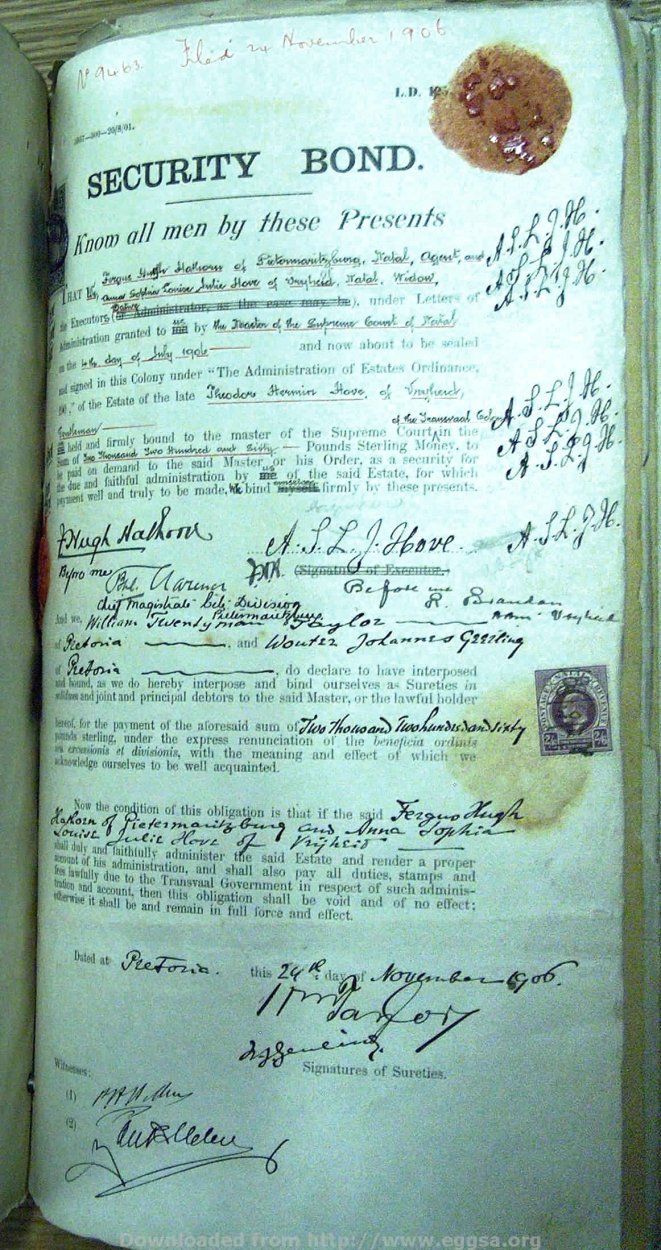 Nº 9463. Filed 24 November 1906
L.D.
SECURITY BOND.
Know all men by these Presents
THAT We, Fergus Hugh Hathorn of Pietermaritzburg, Natal, Agent, and A.S.L.J.H.
Anna Sophia Louise Julie Hove of Vryheid, Natal, Widow, A.S.L.J.H.
the Executors Dative (or Administrator, as the case may be), under Letters of A.S.L.J.H.
Administration granted to us by the Master of the Supreme Court of Natal
on the 4th day of July 1906 and now about to be sealed
and signed in this Colony under "The Administration of Estates Ordinance,
190 ," of the Estate of the late Theodor Hermin Hove, of Vryheid,
Gentleman of the Transvaal Colony A.S.L.J.H.
held and firmly bound to the master of the Supreme Court in the A.S.L.J.H.
Sum of Two Thousand Two Hundred and Sixty Pounds Sterling Money, to A.S.L.J.H.
be paid on demand to the said Master, or his Order, as a security for
the due and faithful administration by us of the said Estate, for which
payment well and truly to be made, We bind ourselves firmly by these presents.
F Hugh Hathorn A.S.L.J. Hove. A.S.L.J.H.
Before me (Signature of Executor.)
Before me
Chief Magistrate City Division R. Brandon
Pietermaritzburg Vryheid
And we, William Twentyman Taylor
of Pretoria, and Wouter Johannes Geerling
of Pretoria, do declare to have interposed
and bound, as we do hereby interpose and bind ourselves as Sureties in
solidum and joint and principal debtors to the said Master, or the lawful holder
hereof, for the payment of the aforesaid sum of Two Thousand Two hundred and sixty
pounds sterling, under the express renunciation of the beneficia ordinis
seu excussionis et divisionis, with the meaning and effect of which we
acknowledge ourselves to be well acquainted.
Now the condition of this obligation is that if the said Fergus Hugh
Hathorn of Pietermaritzburg and Anna Sophia
Louise Julie Hove of Vryheid
shall duly and faithfully administer the said Estate and render a proper
account of his administration, and shall also pay all duties, stamps and
fees lawfully due to the Transvaal Government in respect of such adminis-
tration and account, then this obligation shall be void and of no effect;
otherwise it shall be and remain in full force and effect.
Dated at Pretoria. this 24th day of November 1906.
Signatures of Sureties.
Witnesses:
(1)
(2)
Downloaded from http://www.eggsa.org